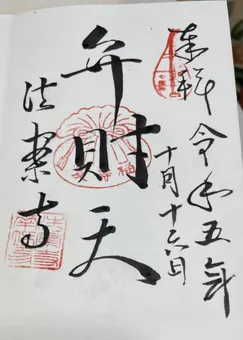 奉拝
令和五年
十月十六日
弁財天
法案寺